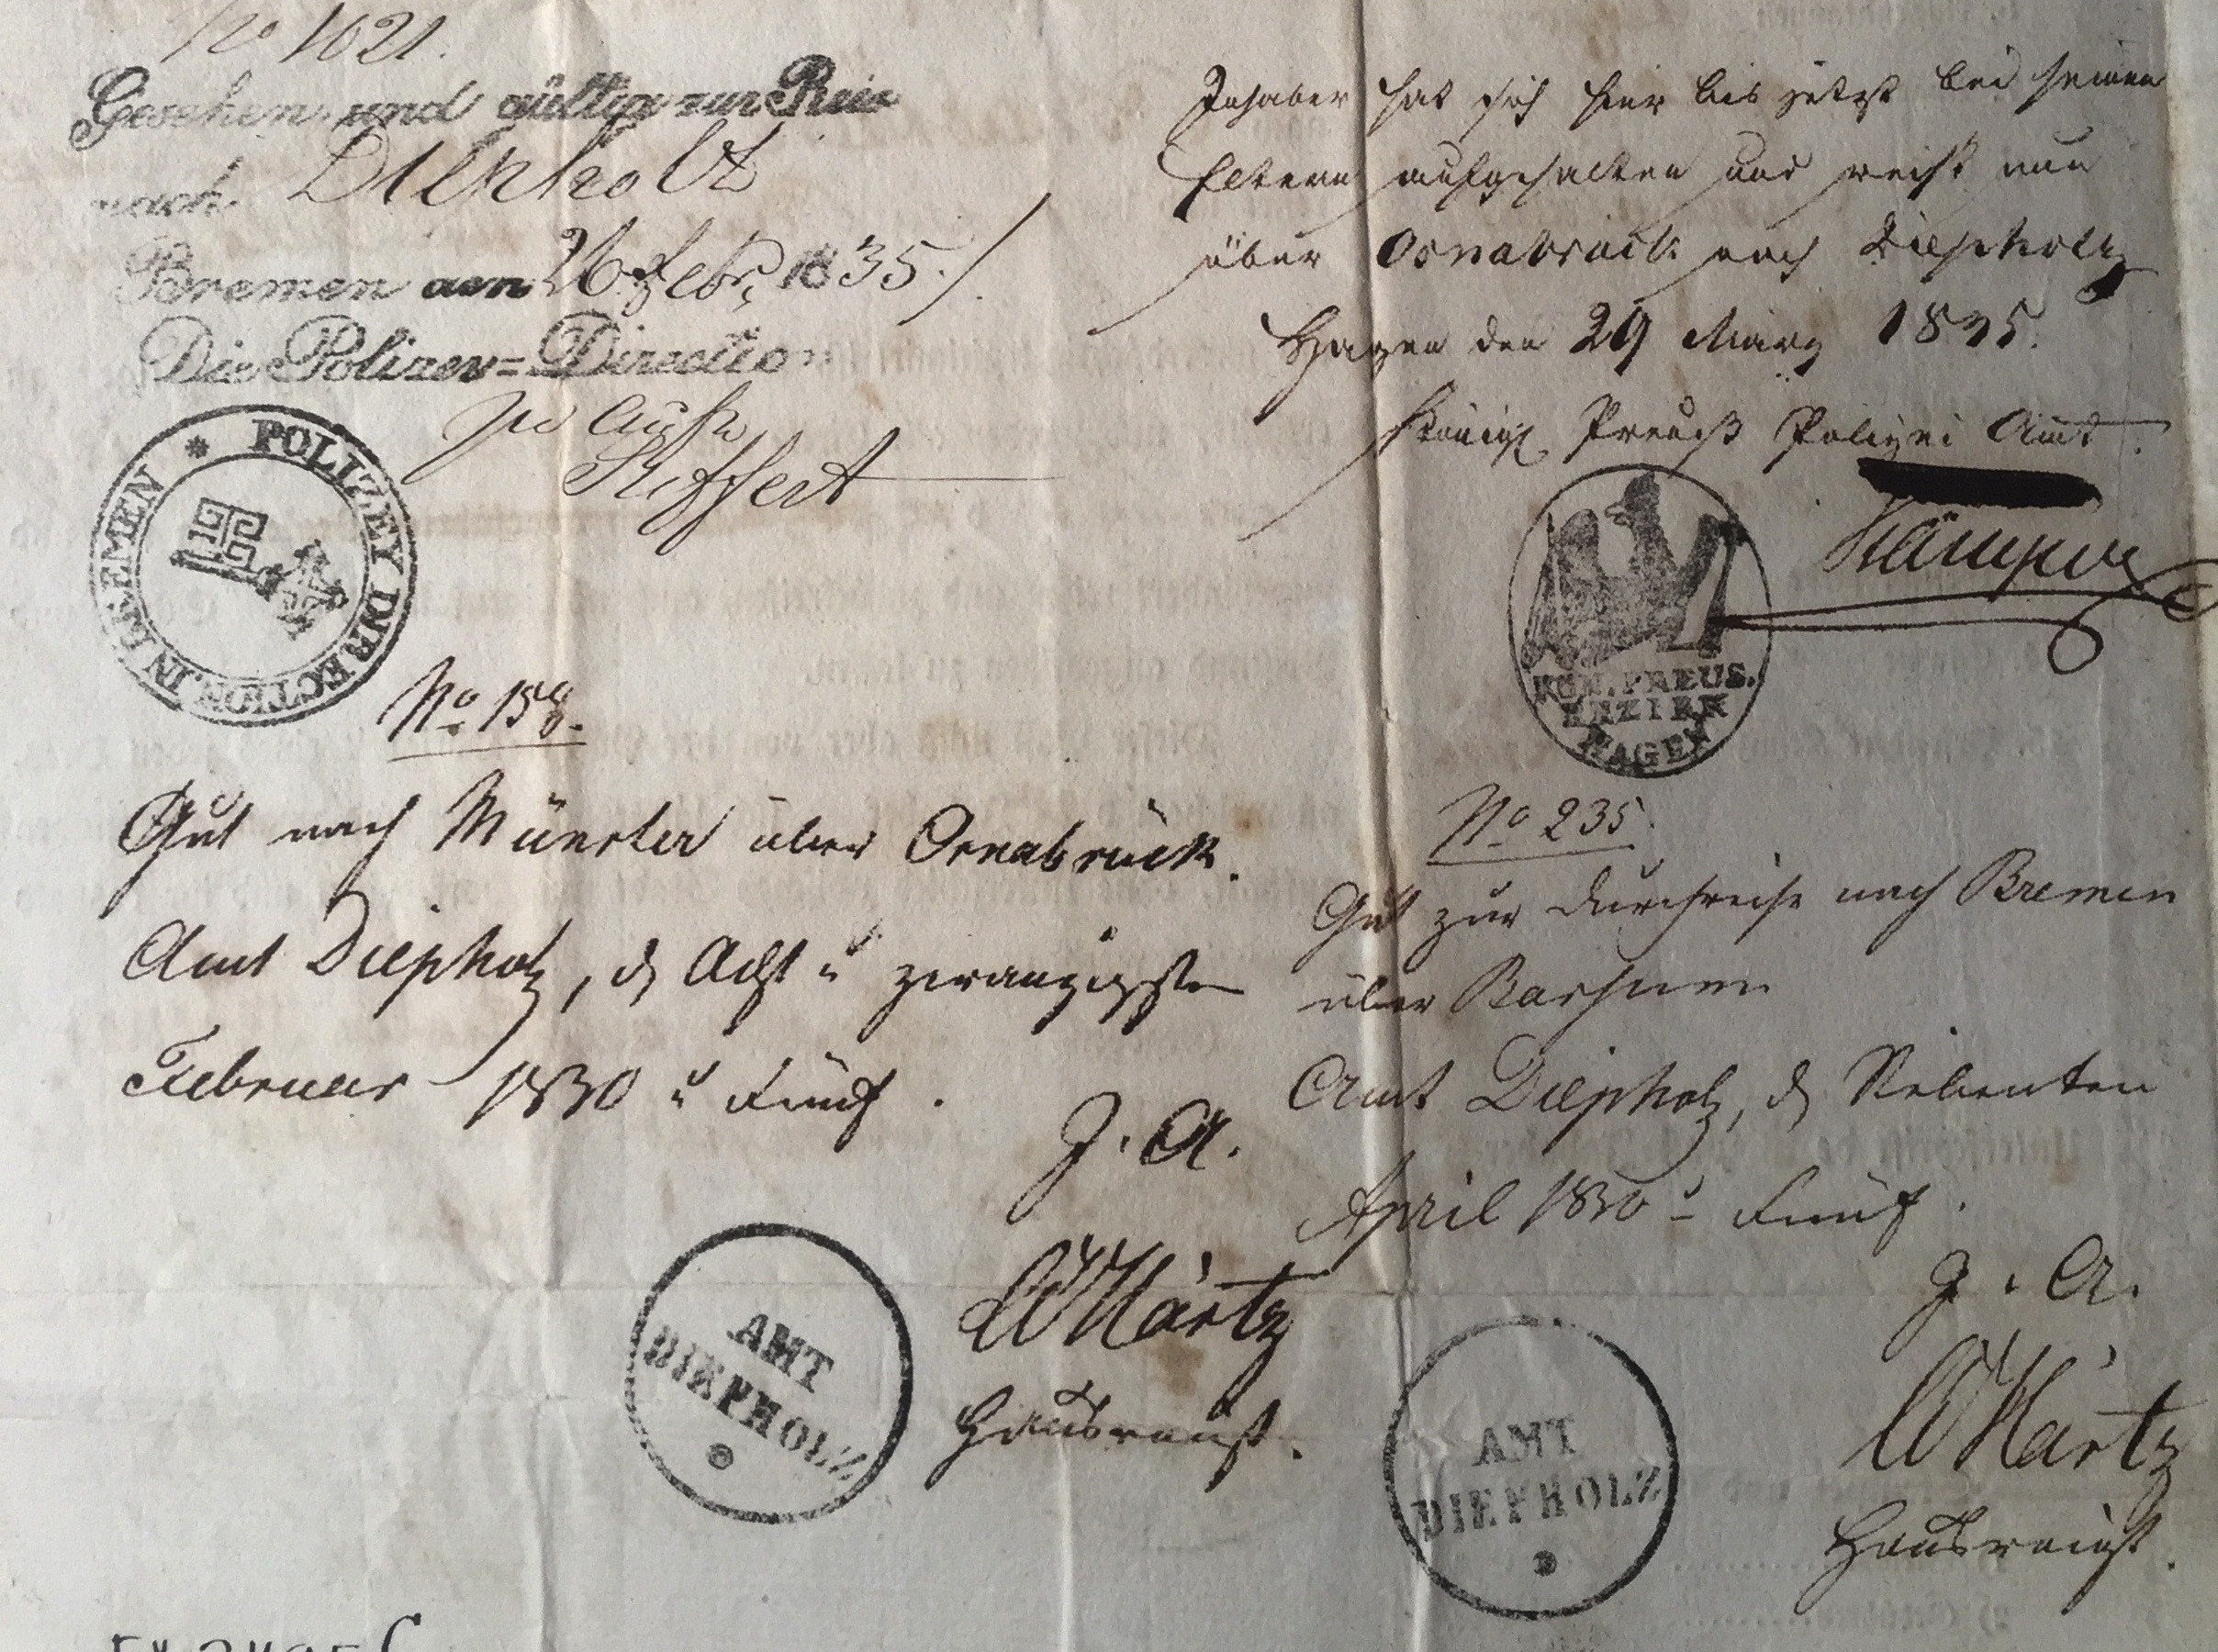 No 1621.
Gesehen und gültig zur Reise
nach Diepholtz
Bremen am 26 Febr. 1835./.
Die Polizey-Direction
POLIZEY DIRECTION IN BREMEN
No 158.
Gut nach Münster über Osnabrück.
Amt Diepholz, d. Acht u zwanzigsten
Februar 1830 u fünf.
J. A.
W Härtz
Hausvoigt.
AMT
DIEPHOLZ
Inhaber hat sich hier bis jetzt bei seinen
Eltern aufgehalten und reist nun
über Osnabrück nach Diepholz
Hagen den 29 März 1835.
Königl Preuß Polizei Amt.
KÖN. PREUS.
BEZIRK
HAGEN
No 235.
Gut zur Durchreise nach Bremen
über Barhum
Amt Diepholz, d. Siebenten
April 1830 u fünf.
J. A.
W Härtz
Hausvoigt.
AMT
DIEPHOLZ